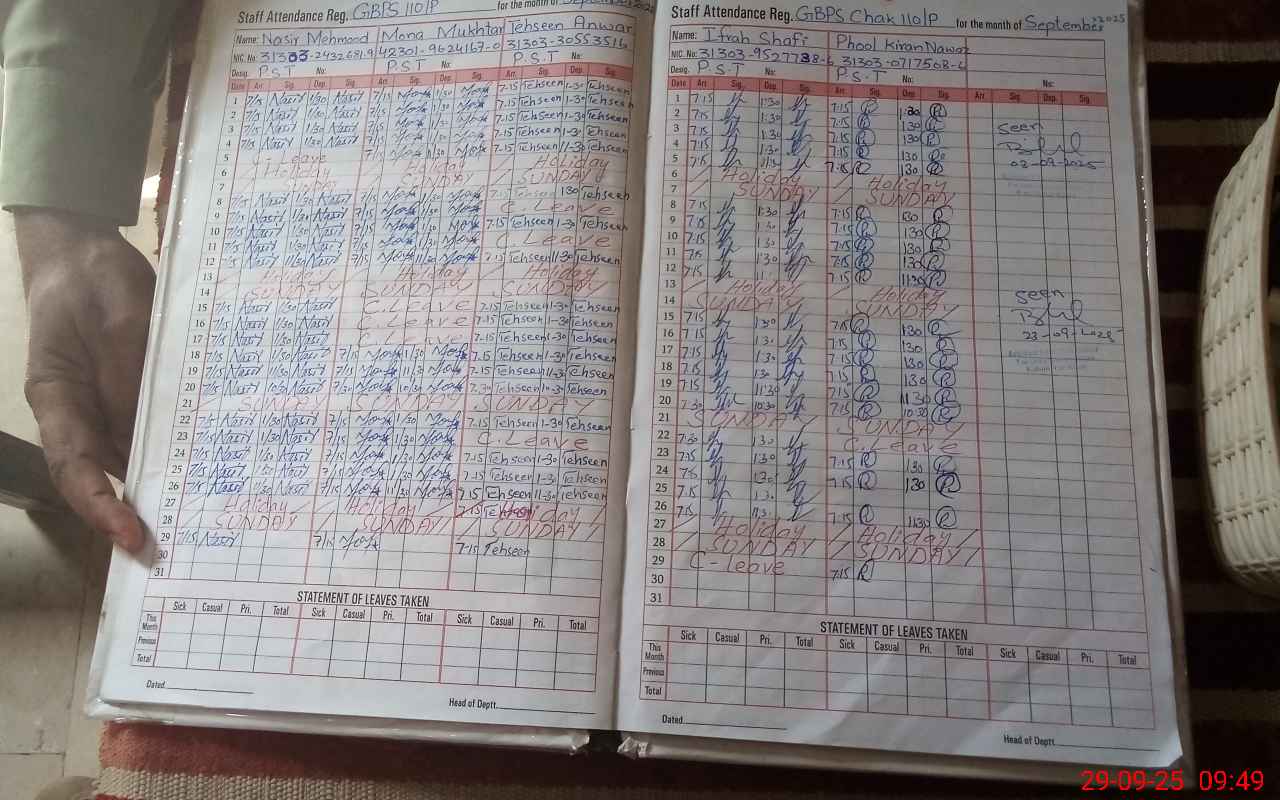 Staff Attendance Reg. GBPS 110/P for the month of September 2025
Name: Nasir Mehmood Mona Mukhtar Tehseen Anwar
NIC. No. 31303-2432681-9 42301-9624167-0 31303-3055351-6
Desig. P.S.T No: P.S.T P.S.T No:
Date Arr. Sig. Dep. Sig. Arr. Sig. Dep. Sig. Arr. Sig. Dep. Sig.
1 7/15 Nasir 1/30 Nasir 7/15 Mona 1/30 Mona 7-15 Tehseen 1-30 Tehseen
2 7/15 Nasir 1/30 Nasir 7/15 Mona 1/30 Mona 7-15 Tehseen 1-30 Tehseen
3 7/15 Nasir 1/30 Nasir 7/15 Mona 1/30 Mona 7-15 Tehseen 1-30 Tehseen
4 7/15 Nasir 1/30 Nasir 7/15 Mona 1/30 Mona 7-15 Tehseen 1-30 Tehseen
5 C - Leave 7/15 Mona 1/30 Mona 7-15 Tehseen 11-30 Tehseen
6 Holiday Holiday Holiday
7 SUNDAY SUNDAY SUNDAY
8 7/15 Nasir 1/30 Nasir 7/15 Mona 1/30 Mona 7-15 Tehseen 130 Tehseen
9 7/15 Nasir 1/30 Nasir 7/15 Mona 1/30 Mona C. Leave
10 7/15 Nasir 1/30 Nasir 7/15 Mona 1/30 Mona 7-15 Tehseen 1-30 Tehseen
11 7/15 Nasir 1/30 Nasir 7/15 Mona 1/30 Mona C. Leave
12 7/15 Nasir 11/30 Nasir 7/15 Mona 11/30 Mona 7-15 Tehseen 11-30 Tehseen
13 Holiday Holiday Holiday
14 SUNDAY SUNDAY SUNDAY
15 7/15 Nasir 1/30 Nasir C. Leave 7-15 Tehseen 1-30 Tehseen
16 7/15 Nasir 1/30 Nasir C. Leave 7-15 Tehseen 1-30 Tehseen
17 7/15 Nasir 1/30 Nasir C. Leave 7-15 Tehseen 1-30 Tehseen
18 7/15 Nasir 1/30 Nasir 7/15 Mona 1/30 Mona 7-15 Tehseen 1-30 Tehseen
19 7/15 Nasir 11/30 Nasir 7/15 Mona 11/30 Mona 7-15 Tehseen 11-30 Tehseen
20 7/15 Nasir 10/30 Nasir 7/30 Mona 10/30 Mona 7-30 Tehseen 10-30 Tehseen
21 SUNDAY SUNDAY SUNDAY
22 7/15 Nasir 1/30 Nasir 7/15 Mona 1/30 Mona 7-15 Tehseen 1-30 Tehseen
23 7/15 Nasir 1/30 Nasir 7/15 Mona 1/30 Mona C. Leave
24 7/15 Nasir 1/30 Nasir 7/15 Mona 1/30 Mona 7-15 Tehseen 1-30 Tehseen
25 7/15 Nasir 1/30 Nasir 7/15 Mona 1/30 Mona 7-15 Tehseen 1-30 Tehseen
26 7/15 Nasir 11/30 Nasir 7/15 Mona 11/30 Mona 7-15 Tehseen 11-30 Tehseen
27 Holiday Holiday 7-15 Tehseen Holiday
28 SUNDAY SUNDAY SUNDAY
29 7/15 Nasir 7/15 Mona 7-15 Tehseen
30
31
STATEMENT OF LEAVES TAKEN
Sick Casual Pri. Total Sick Casual Pri. Total Sick Casual Pri. Total
This Month
Previous
Total
Dated
Head of Deptt.
Staff Attendance Reg. GBPS Chak 110/P for the month of September 2025
Name: Ifrah Shafi Phool Kiran Nawaz
NIC. No: 31303-9527738-6 31303-0717508-6
Desig. P.S.T No: P.S.T No: No:
Date Arr. Sig. Dep. Sig. Arr. Sig. Dep. Sig. Arr. Sig. Dep. Sig.
1 7:15 1:30 7:15 R 1:30 R
2 7:15 1:30 7:15 R 130 R
3 7:15 1:30 7:15 R 130 R seen
4 7:15 1:30 7:15 R 130 R
5 7:15 11:30 7:15 R 130 R 02-09-2025
6 Holiday Holiday
7 SUNDAY SUNDAY
8 7:15 1:30 7:15 R 130 R
9 7:15 1:30 7:15 R 130 R
10 7:15 1:30 7:15 R 130 R
11 7:15 1:30 7:15 R 130 R
12 7:15 11:30 7:15 R 1130 R
13 Holiday Holiday seen
14 SUNDAY SUNDAY
15 7:15 1:30 7:15 R 130 R 23-09-2025
16 7:15 1:30 7:15 R 130 R
17 7:15 1:30 7:15 R 130 R
18 7:15 1:30 7:15 R 130 R
19 7:15 11:30 7:15 R 1130 R
20 7:30 10:30 7:15 R 1030 R
21 SUNDAY SUNDAY
22 7:30 1:30 C. Leave
23 7:15 1:30 7:15 R 130 R
24 7:15 1:30 7:15 R 130 R
25 7:15 1:30
26 7:15 11:30 7:15 R 1130 R
27 Holiday Holiday
28 SUNDAY SUNDAY
29 C - Leave 7:15 R
30
31
STATEMENT OF LEAVES TAKEN
Sick Casual Pri. Total Sick Casual Pri. Total Sick Casual Pri. Total
This Month
Previous
Total
Dated
Head of Deptt.
29-09-25 09:49